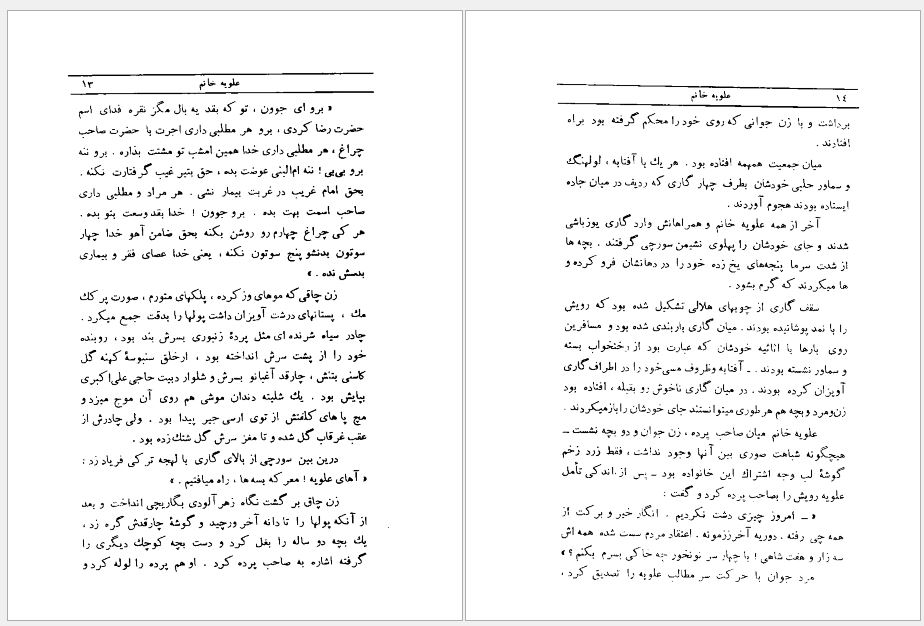 علویه خانم ۱۳
« برو ای جوون ، تو که بقد یه بال مگز نقره فدای اسم
حضرت رضا کردی ، برو هر مطلبی داری اجرت با حضرت صاحب
چراغ ، هر مطلبی داری خدا همین امشب تو مشتت بذاره . برو ننه
برو بی‌بی ! ننه ام‌البنی عوضت بده ، حق بتیر غیب گرفتارت نکنه .
بحق امام غریب در غربت بیمار نشی . هر مراد و مطلبی داری
صاحب اسمت بهت بده . برو جوون ! خدا بقد وسعت بتو بده .
هر کی چراغ چهارم رو روشن بکنه بحق ضامن آهو خدا چهار
سوتون بدنشو پنج سوتون نکنه ، یعنی خدا عصای فقر و بیماری
بدسش نده . »
زن چاقی که موهای وز کرده ، پلکهای متورم ، صورت پر کك
مك ، پستانهای درشت آویزان داشت پولها را بدقت جمع میکرد .
چادر سیاه شرنده ای مثل پردهٔ زنبوری بسرش بند بود ، روبنده
خود را از پشت سرش انداخته بود ، ارخلق سنبوسهٔ کهنه گل
کاسنی بتنش ، چارقد آغبانو بسرش و شلوار دبیت حاجی علی‌اکبری
بپایش بود . یك شلیته دندان موشی هم روی آن موج میزد و
مچ پاهای کلفتش از توی ارسی جیر پیدا بود . ولی چادرش از
عقب غرقاب گل شده و تا مغز سرش گل شتك زده بود .
درین بین سورچی از بالای گاری با لهجه ترکی فریاد زد :
« آهای علویه ! معر که بسه‌ها ، راه میافتیم . »
زن چاق بر گشت نگاه زهر آلودی بگاریچی انداخت و بعد
از آنکه پولها را تا دانه آخر ورچید و گوشهٔ چارقدش گره زد ،
یك بچه دو ساله را بغل کرد و دست بچه کوچك دیگری را
گرفته اشاره به صاحب پرده کرد . او هم پرده را لوله کرد و
علویه خانم ۱٤
برداشت و با زن جوانی که روی خود را محکم گرفته بود براه
افتادند .
میان جمعیت همهمه افتاده بود . هر یك با آفتابه ، لولهنگ
و سماور حلبی خودشان بطرف چهار گاری که ردیف در میان جاده
ایستاده بودند هجوم آوردند .
آخر از همه علویه خانم و همراهانش وارد گاری یوزباشی
شدند و جای خودشان را پهلوی نشیمن سورچی گرفتند . بچه ها
از شدت سرما پنجه‌های یخ زده خود را در دهانشان فرو کرده و
ها میکردند که گرم بشود .
سقف گاری از چوبهای هلالی تشکیل شده بود که رویش
را با نمد پوشانیده بودند . میان گاری باربندی شده بود و مسافرین
روی بارها با اثاثیه خودشان که عبارت بود از رختخواب بسته
و سماور نشسته بودند . ـ آفتابه وظروف مسی خود را در اطراف گاری
آویزان کرده بودند . در میان گاری ناخوش رو بقبله ، افتاده بود
زن‌ومرد و بچه هم هر طوری میتوانستند جای خودشان را باز میکردند .
علویه خانم میان صاحب پرده ، زن جوان و دو بچه نشست ـ
هیچگونه شباهت صوری بین آنها وجود نداشت ، فقط زرد زخم
گوشهٔ لب وجه اشتراك این خانواده بود ـ پس از اندکی تأمل
علویه رویش را بصاحب پرده کرد و گفت :
« ـ امروز چیزی دشت نکردیم . انگار خیر و برکت از
همه چی رفته . دوریه آخرزمونه . اعتقاد مردم سست شده همه اش
سه زار و هفت شاهی ! با چهار سر نونخور چه خاکی بسرم بکنم ؟ »
مرد جوان با حرکت سر مطالب علویه را تصدیق کرد .